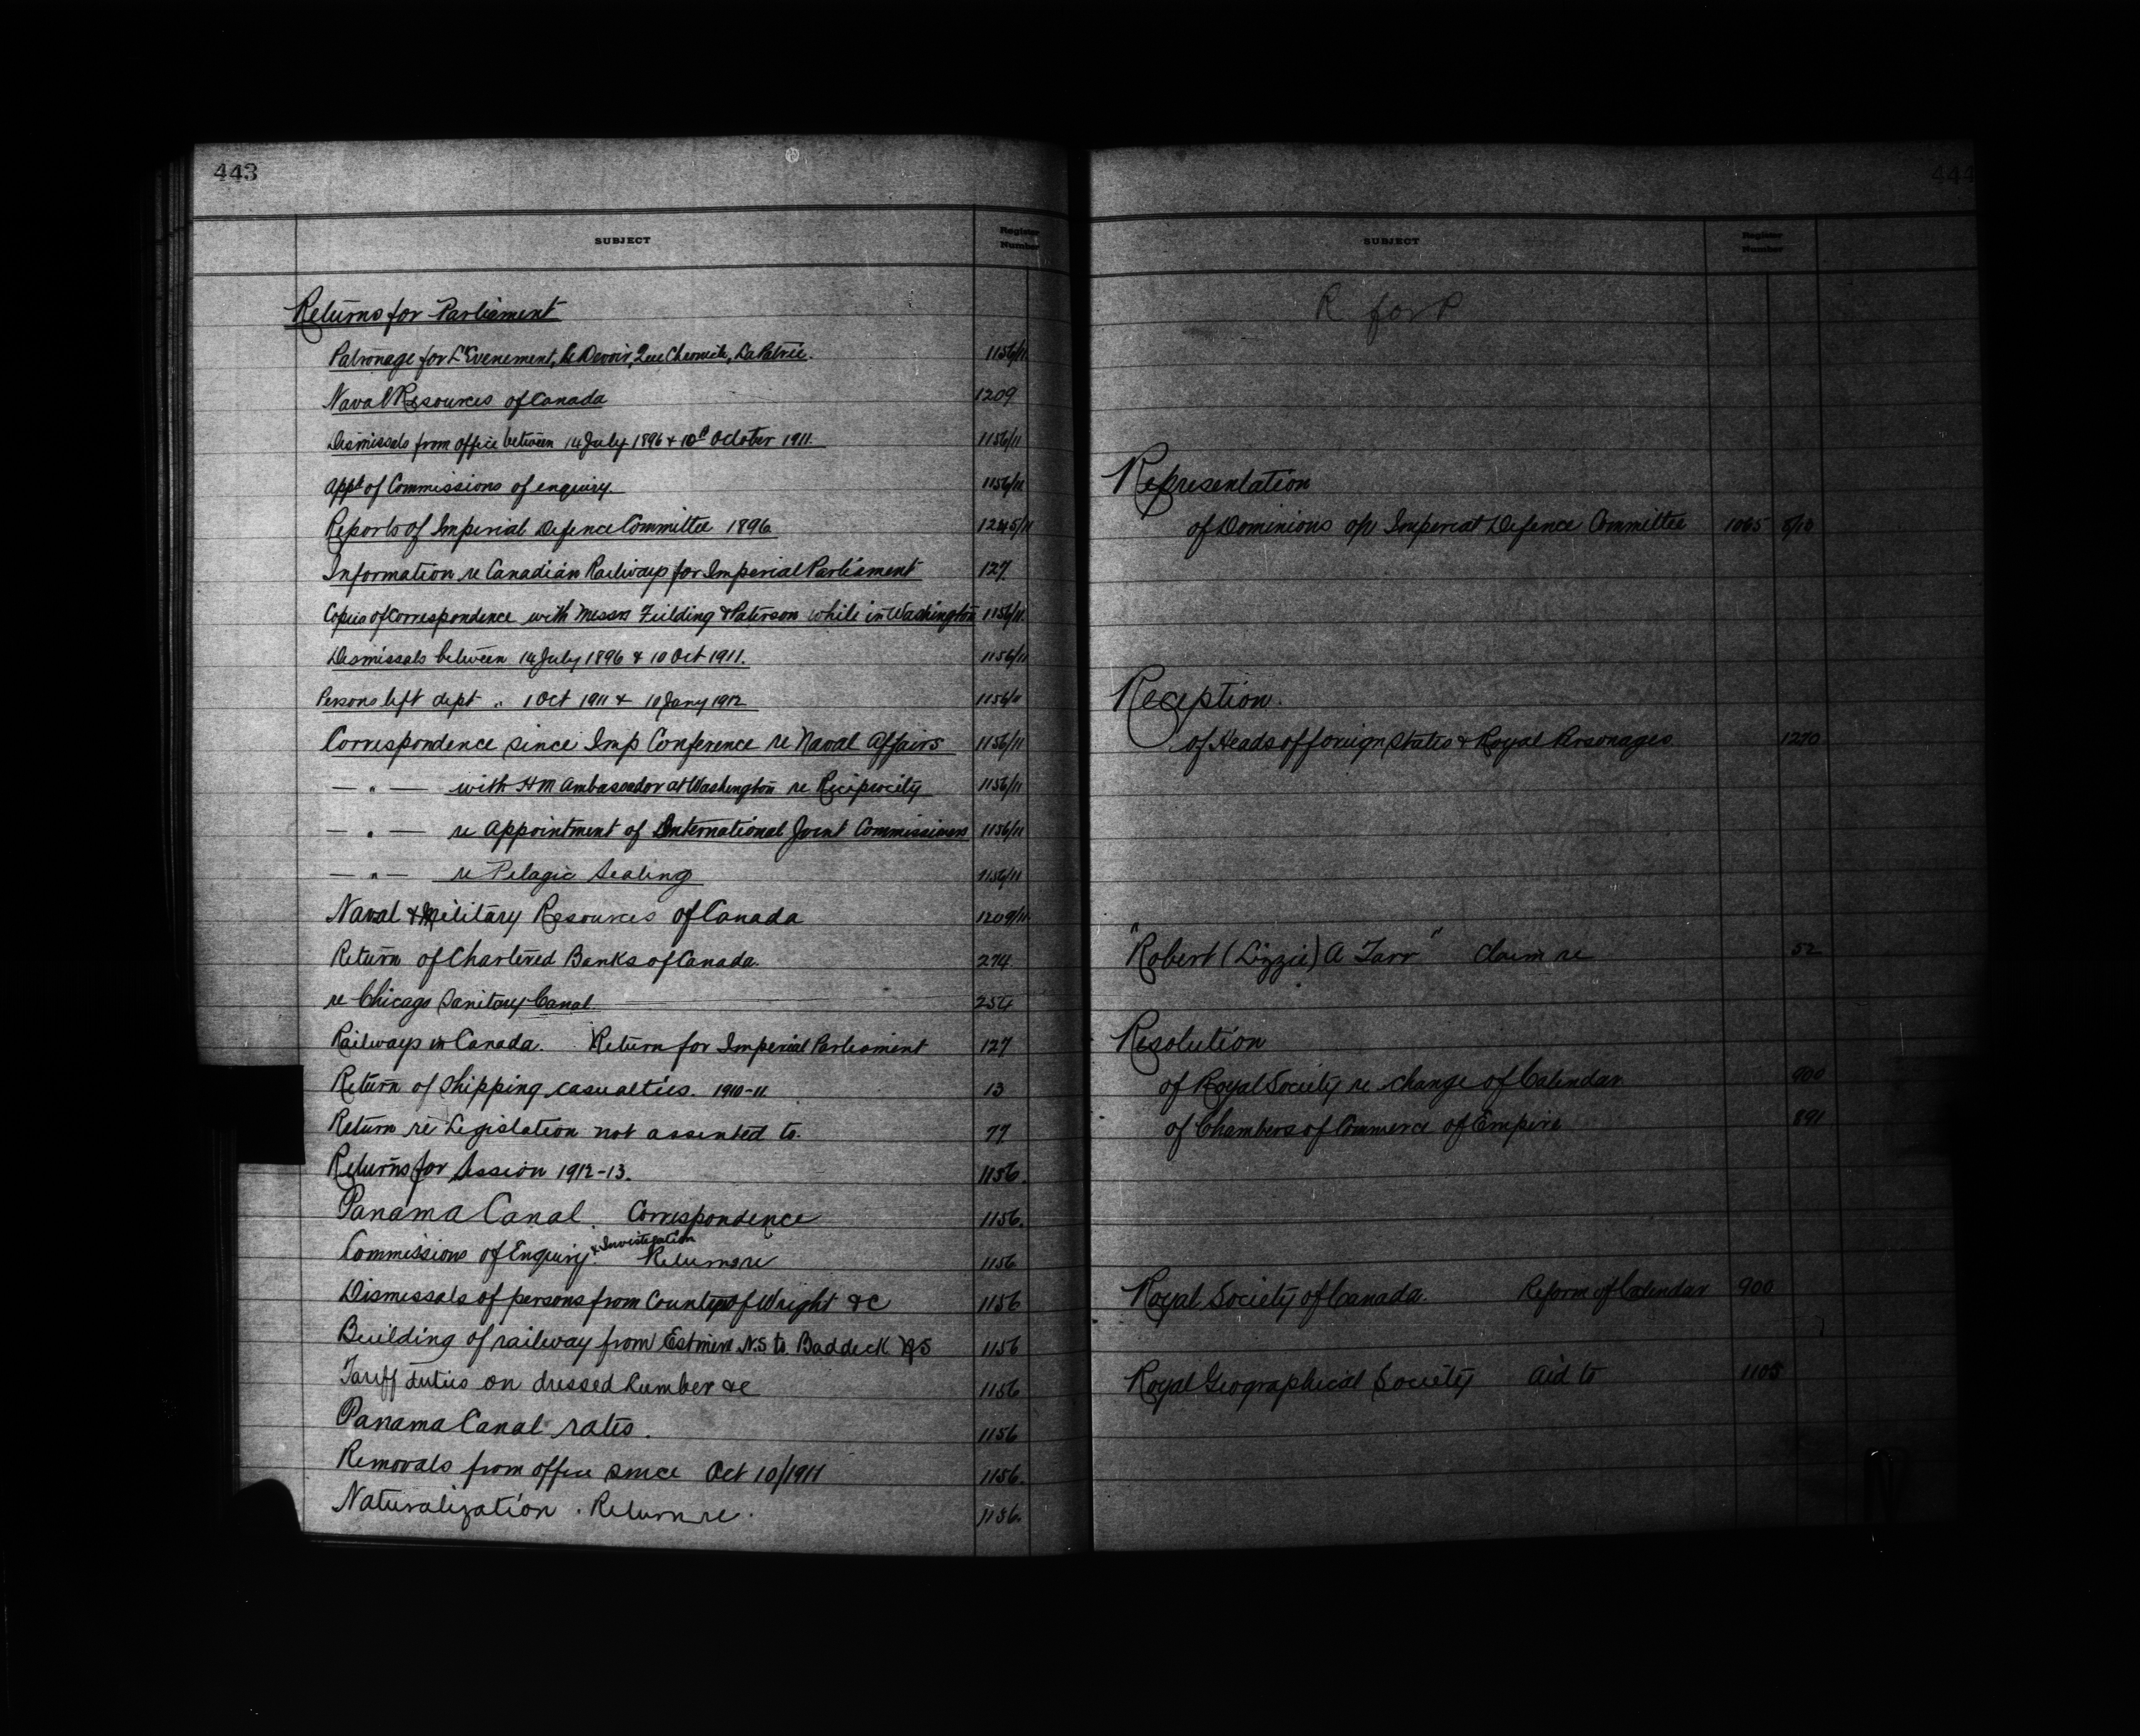 443
SUBJECT Register Number
Returns for Parliament
Patronage for L'Evenement, Le Devoir, Que Chronicle, La Patrie. 1156/11
Naval Resources of Canada 1209
Dismissals from office between 14 July 1896 & 10th October 1911. 1156/11
Appt of Commissions of enquiry. 1156/11
Reports of Imperial Defence Committee 1896 1245/11
Information re Canadian Railways for Imperial Parliament 127
Copies of Correspondence with Messrs Fielding & Paterson while in Washington 1156/11.
Dismissals between 14 July 1896 & 10 Oct 1911. 1156/11
Persons left dept " 1 Oct 1911 & 10 Jany 1912 1156/11
Correspondence since Imp Conference re Naval Affairs 1156/11
— " — with HM Ambassador at Washington re Reciprocity 1156/11
— " — re Appointment of International Joint Commissioners 1156/11
— " — re Pelagic Sealing 1156/11
Naval & Military Resources of Canada 1209/11.
Return of Chartered Banks of Canada. 274
re Chicago Sanitary Canal 254
Railways in Canada. Return for Imperial Parliament 127
Return of Shipping casualties. 1910-11. 13
Return re Legislation not assented to. 77
Returns for Session 1912-13. 1156.
Panama Canal. Correspondence 1156.
& Investigation
Commissions of Enquiry. Return re 1156
Dismissals of persons from County of Wright &c 1156
Building of railway from Estmere N.S. to Baddeck NS 1156
Tariff duties on dressed lumber &c 1156
Panama Canal rates. 1156
Removals from office since Oct 10/1911 1156.
Naturalization. Return re. 1156.
444
SUBJECT Register Number
R for P
Representation
of Dominions o/n Imperial Defence Committee 1065 5/10
Reception.
of Heads of foreign States & Royal Personages 1270
"Robert (Lizzie) A Tarr" Claim re 52
Resolution
of Royal Society re change of Calendar 900
of Chambers of Commerce of Empire 891
Royal Society of Canada. Reform of Calendar 900
Royal Geographical Society Aid to 1105